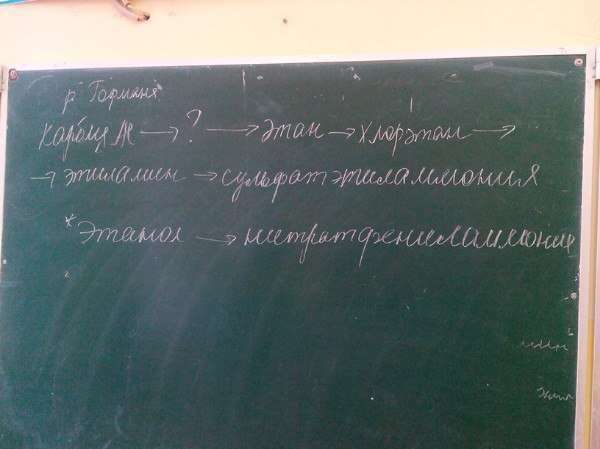 р. Гормана
карбид Al → ? → этан → хлорэтан →
→ этиламин → сульфат этиламмония
* Этанол → нитрат фениламмония